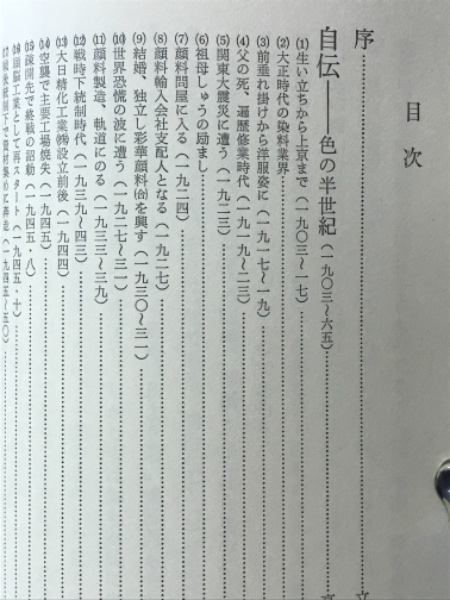 目次
序
自伝――色の半世紀（一九〇三～六五）
(1)生い立ちから上京まで（一九〇三～一七）
(2)大正時代の染料業界
(3)前垂れ掛けから洋服姿に（一九一七～一九）
(4)父の死、遍歴修業時代（一九一九～二三）
(5)関東大震災に遭う（一九二三）
(6)祖母しゅうの励まし
(7)顔料問屋に入る（一九二四）
(8)顔料輸入会社支配人となる（一九二七）
(9)結婚、独立し彩華顔料㈾を興す（一九三〇～三一）
(10)世界恐慌の波に遭う（一九二七～三一）
(11)顔料製造、軌道にのる（一九三三～三九）
(12)戦時下統制時代（一九三九～四三）
(13)大日精化工業㈱設立前後（一九四四）
(14)空襲で主要工場焼失（一九四五）
(15)疎開先で終戦の詔勅（一九四五・八）
(16)頭脳工業として再スタート（一九四五・十）
(17)戦後統制下で資材集めに奔走（一九四五～五〇）